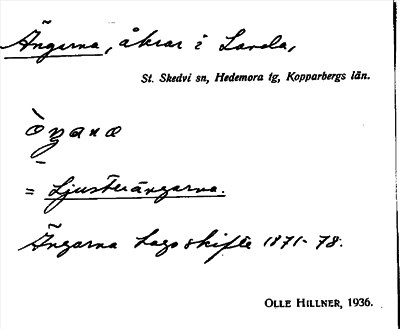 Ängarna, åkrar i Landa,
St. Skedvi sn, Hedemora tg, Kopparbergs län.
òŋana
= Ljusterängarna.
Ängarna Laga skifte 1871-78.
OLLE HILLNER, 1936.